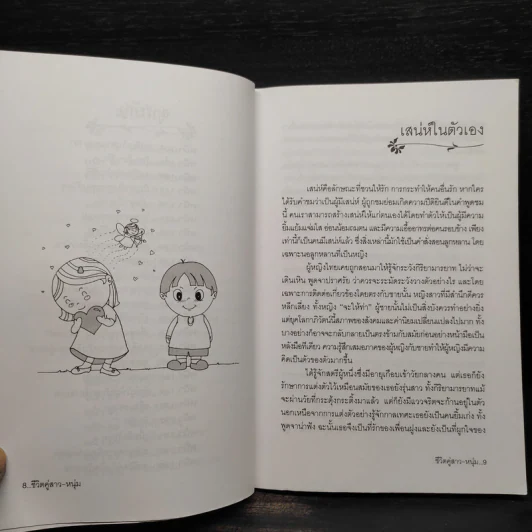 8...ชีวิตคู่สาว-หนุ่ม
เสน่ห์ในตัวเอง
เสน่ห์คือลักษณะที่ชวนให้รัก การกระทำให้คนอื่นรัก หากใคร
ได้รับคำชมว่าเป็นผู้มีเสน่ห์ ผู้ถูกชมย่อมเกิดความปีติยินดีในคำพูดชม
นี้ คนเราสามารถสร้างเสน่ห์ให้แก่ตนเองได้โดยทำตัวให้เป็นผู้มีความ
ยิ้มแย้มแจ่มใส อ่อนน้อมถมตน และมีความเอื้ออาทรต่อคนรอบข้าง เพียง
เท่านี้ก็เป็นคนมีเสน่ห์แล้ว ซึ่งสิ่งเหล่านี้มักใช้เป็นคำสั่งสอนลูกหลาน โดย
เฉพาะนอลูกหลานที่เป็นหญิง
ผู้หญิงไทยเคยถูกสอนมาให้รู้จักระวังกิริยามารยาท ไม่ว่าจะ
เดินเหิน พูดจาปราศรัย ว่าควรจะระมัดระวังวางตัวอย่างไร และโดย
เฉพาะการติดต่อเกี่ยวข้องโดยตรงกับชายนั้น หญิงสาวที่มีสำนึกดีควร
หลีกเลี่ยง ทั้งหญิง "จะให้ท่า" ผู้ชายนั้นไม่เป็นสิ่งบังควรทำอย่างยิ่ง
แต่ยุคโลกาภิวัตน์นี้สภาพของสังคมและค่านิยมเปลี่ยนแปลงไปมาก ทั้ง
บางอย่างก็อาจจะกลับกลายเป็นตรงข้ามกับสมัยก่อนอย่างหน้ามือเป็น
หลังมือทีเดียว ความรู้สึกเสมอภาคของผู้หญิงกับชายทำให้ผู้หญิงมีความ
คิดเป็นตัวของตัวมากขึ้น
ได้รู้จักสตรีผู้หนึ่งซึ่งมีอายุเกือบเข้าวัยกลางคน แต่เธอก็ยัง
รักษาการแต่งตัวไว้เหมือนสมัยของเธอยังรุ่นสาว ทั้งกิริยามารยาทแม้
จะผ่านวัยที่กระตุ้งกระติ้งมาแล้ว แต่ก็ยังมีแววจริตจะก้านอยู่ในตัว
นอกเหนือจากการแต่งตัวอย่างรู้จักกาลเทศะเธอยังเป็นคนยิ้มเก่ง ทั้ง
พูดจาน่าฟัง ฉะนั้นเธอจึงเป็นที่รักของเพื่อนฝูงและยังเป็นที่ผูกใจของ
ชีวิตคู่สาว-หนุ่ม...9